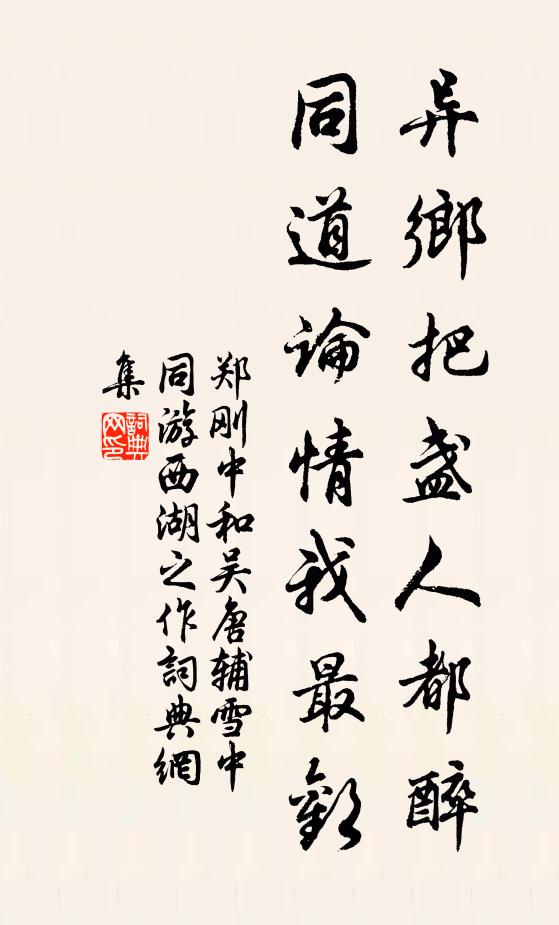 异鄉把盏人都醉
同道論情我最歡
郑刚中和吴唐辅雪中
同游西湖之作詞典網
集
詞典網印